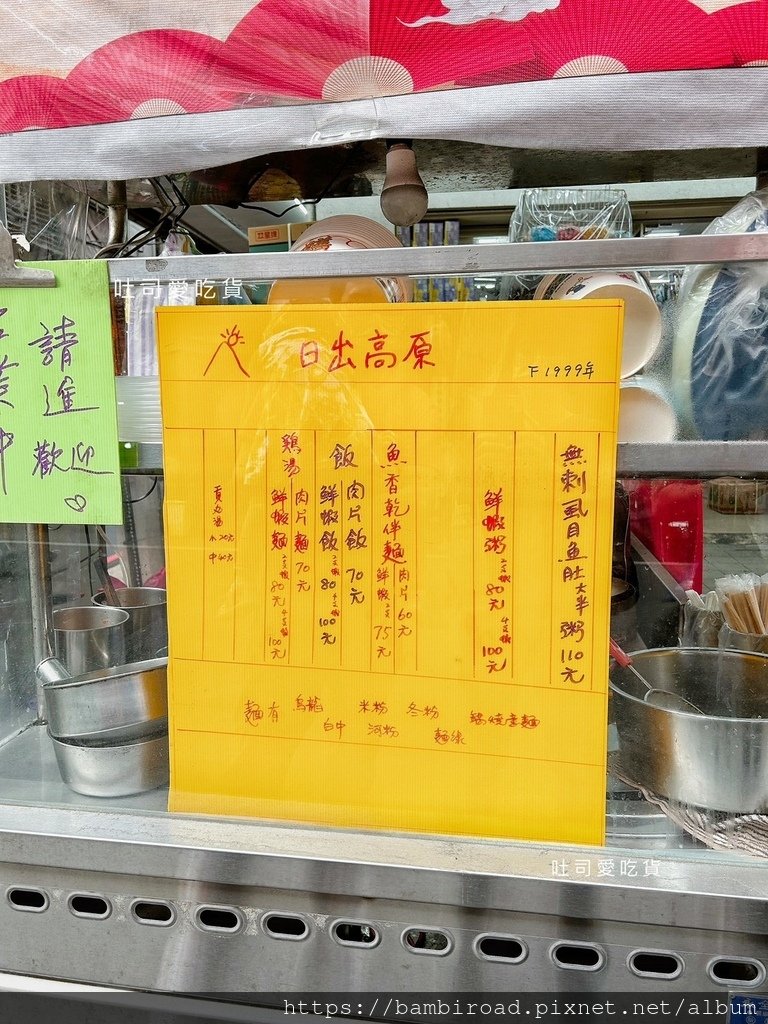 吐司愛吃貨
請進
歡迎
日出高原
下1999年
無刺虱目魚肚大半粥 110元
鮮蝦粥 2支蝦 80元 4支蝦 100元
魚香乾伴麵 肉片 60元
鮮蝦 2支 75元
飯
肉片飯 70元
鮮蝦飯 2支蝦 80 4支蝦 100元
鷄湯
肉片麵 70元
鮮蝦麵 2支蝦 80元 4支蝦 100元
貢丸湯 小20元 中40元
麵有 烏龍 米粉 冬粉 鍋燒意麵
白中 河粉 麵線
吐司愛吃貨
https://bambiroad.pixnet.net/album